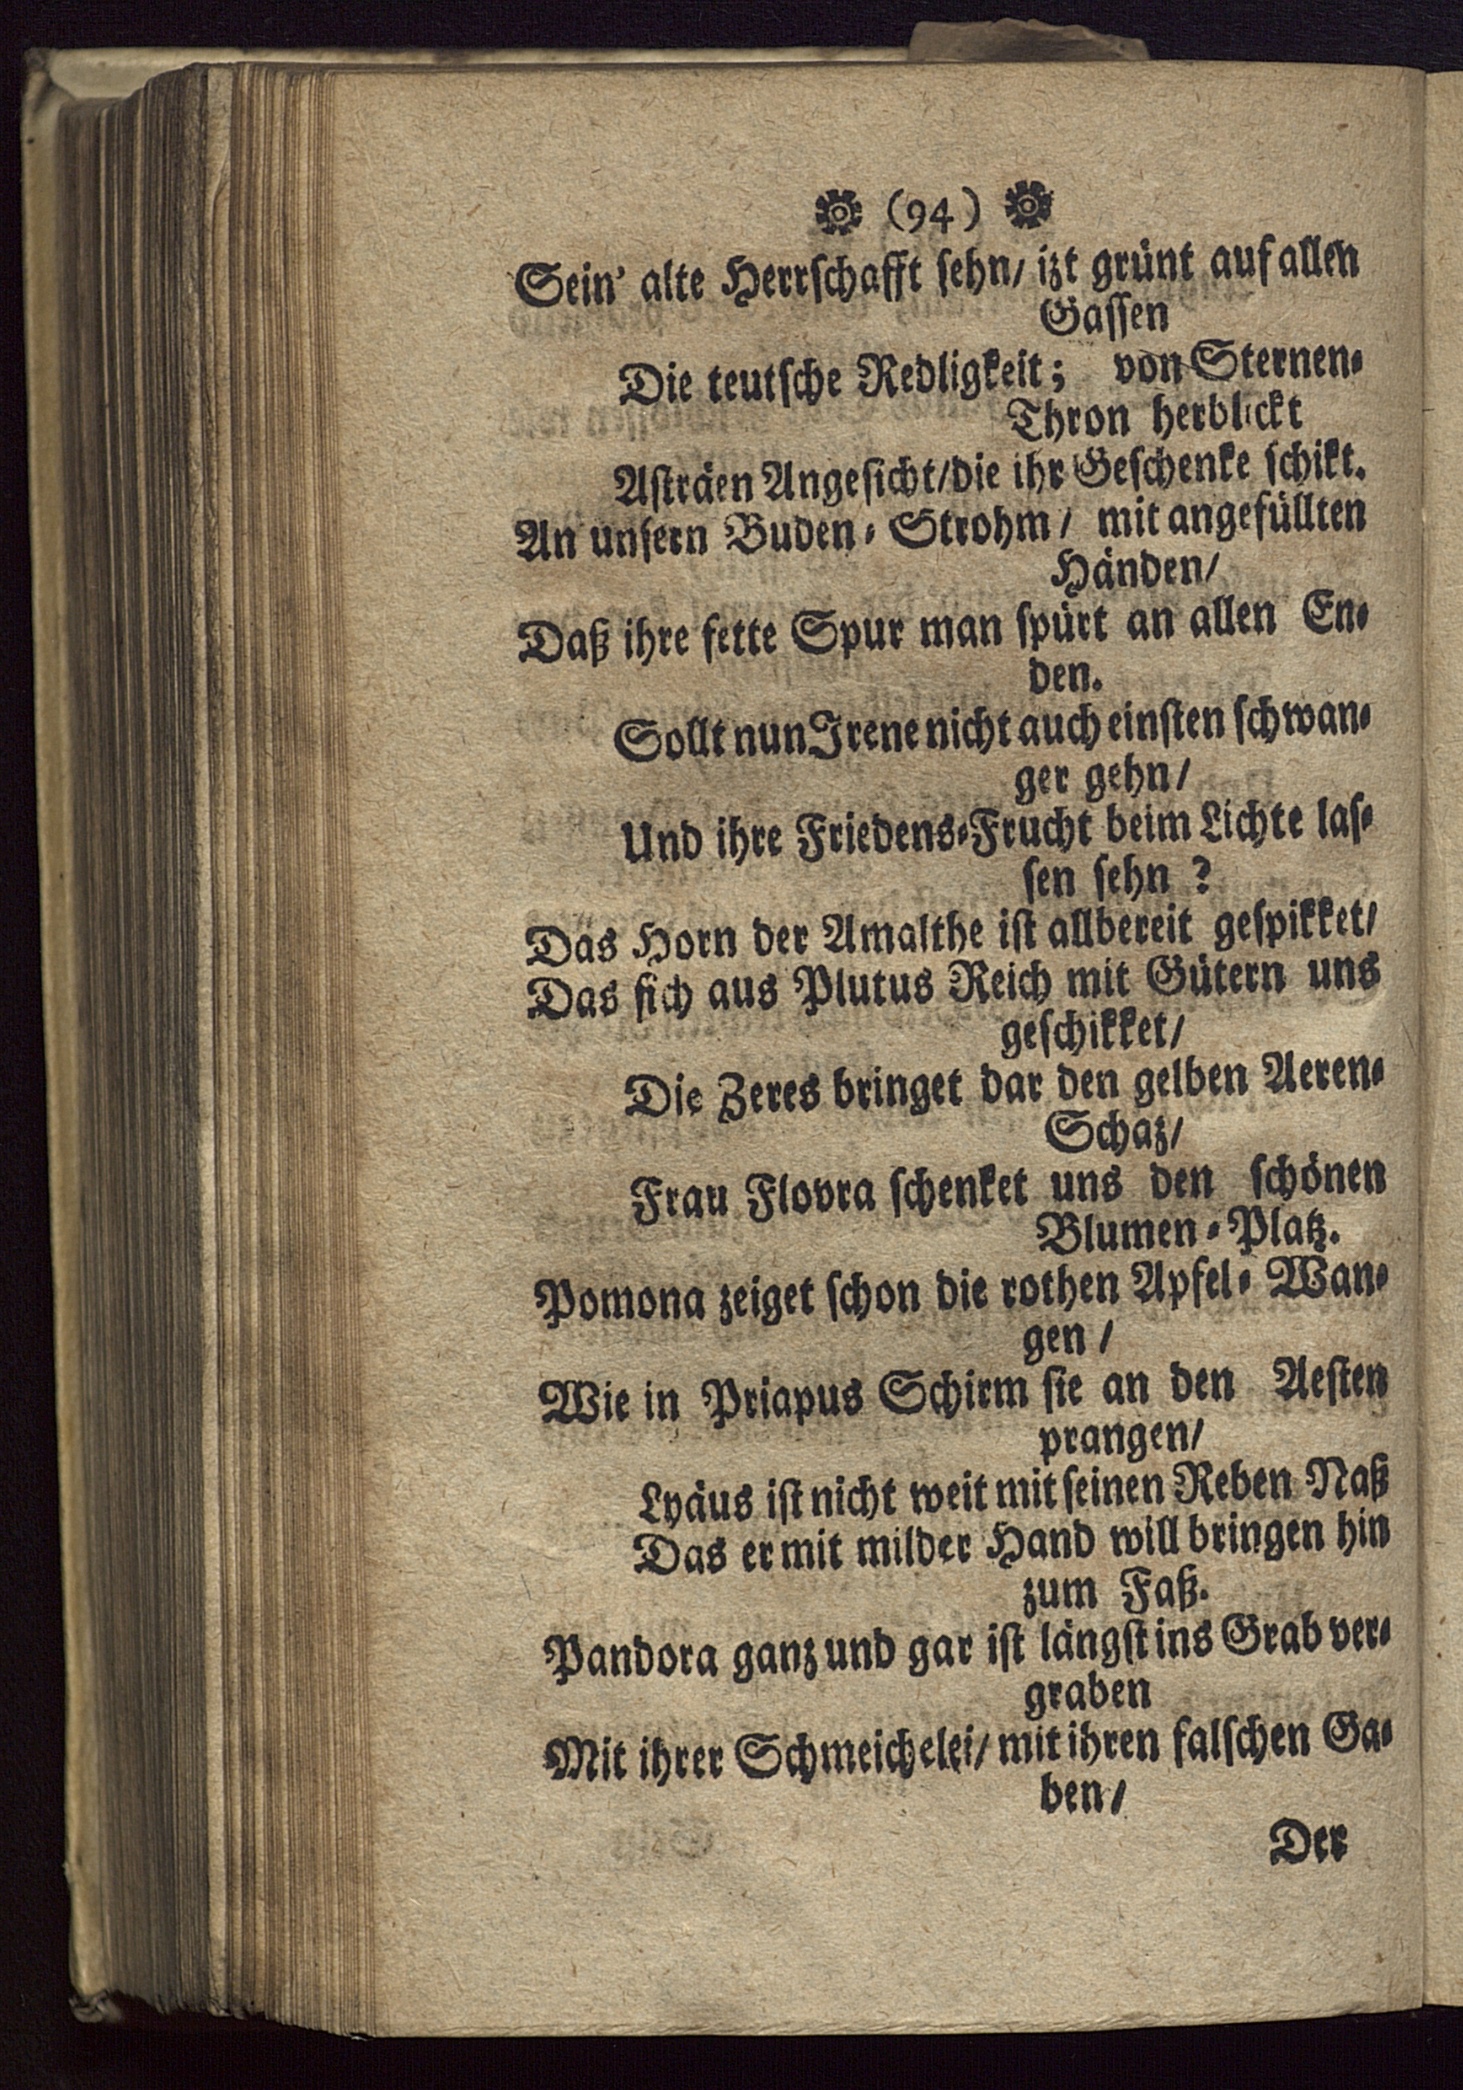 (94)
Sein' alte Herrſchafft ſehn/ izt grünt auf allen
Gaſſen
Die teutſche Redligkeit; von Sternen⸗
Thron herblickt
Aſträen Angeſicht/die ihr Geſchenke ſchikt.
An unſern Buden⸗Strohm/ mit angefüllten
Händen/
Daß ihre fette Spur man ſpürt an allen En⸗
den.
Sollt nun Irene nicht auch einſten ſchwan⸗
ger gehn/
Und ihre Friedens⸗Frucht beim Lichte laſ⸗
ſen ſehn?
Das Horn der Amalthe iſt allbereit geſpikket/
Das ſich aus Plutus Reich mit Gütern uns
geſchikket/
Die Zeres bringet dar den gelben Aeren⸗
Schaz/
Frau Flovra ſchenket uns den ſchönen
Blumen⸗Platz.
Pomona zeiget ſchon die rothen Apfel⸗Wan⸗
gen/
Wie in Priapus Schirm ſie an den Aeſten
prangen/
Lyäus iſt nicht weit mit ſeinen Reben Naß
Das er mit milder Hand will bringen hin
zum Faß.
Pandora ganz und gar iſt längſt ins Grab ver⸗
graben
Mit ihrer Schmeichelei/ mit ihren falſchen Ga⸗
ben/
Der